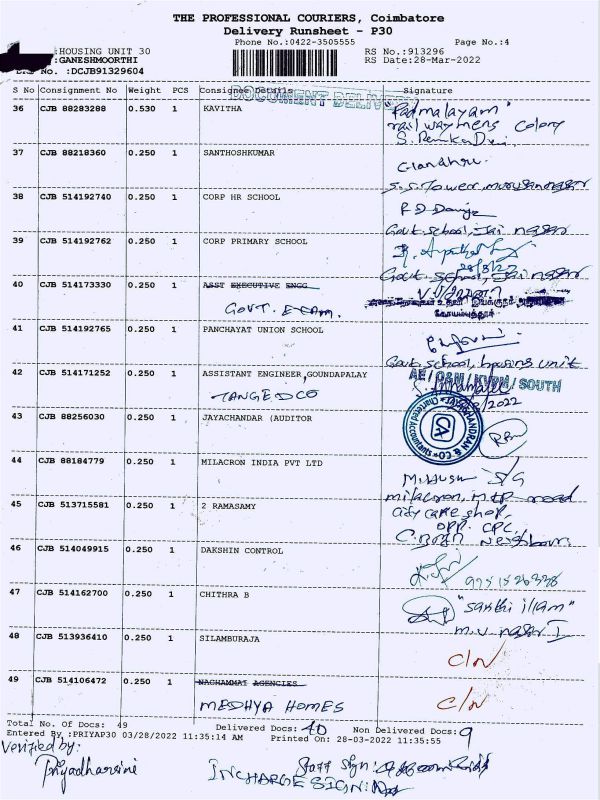 THE PROFESSIONAL COURIERS, Coimbatore
Delivery Runsheet - P30
Phone No.:0422-3505555 Page No.:4
:HOUSING UNIT 30 RS No.:913296
:GANESHMOORTHI RS Date:28-Mar-2022
No. :DCJB91329604
S No Consignment No Weight PCS Consignee Details Signature
DOCUMENT DELIV
36 CJB 88283288 0.530 1 KAVITHA "Padmalayam"
railwaymens Colony
37 CJB 88218360 0.250 1 SANTHOSHKUMAR
S.S. Tower, murugan nagar
38 CJB 514192740 0.250 1 CORP HR SCHOOL
Govt. school, Jai nagar
39 CJB 514192762 0.250 1 CORP PRIMARY SCHOOL
28/3/22
Govt. school, Jai nagar
40 CJB 514173330 0.250 1 ASST EXECUTIVE ENGG
GOVT. EXAM.
கோயம்புத்தூர்
41 CJB 514192765 0.250 1 PANCHAYAT UNION SCHOOL
Govt school, housing unit
42 CJB 514171252 0.250 1 ASSISTANT ENGINEER,GOUNDAPALAY
AE/O&M/KVPM/SOUTH
TANGEDCO
/2022
43 CJB 88256030 0.250 1 JAYACHANDAR (AUDITOR
JAYACHANDRAN & CO
CA
Chartered Accountants
44 CJB 88184779 0.250 1 MILACRON INDIA PVT LTD
S/G
milacron, MTP road
45 CJB 513715581 0.250 1 2 RAMASAMY
city care shop,
opp. CPC,
Neighbour.
46 CJB 514049915 0.250 1 DAKSHIN CONTROL
47 CJB 514162700 0.250 1 CHITHRA B
"sakthi illam"
m.v nagar I
48 CJB 513936410 0.250 1 SILAMBURAJA
C/N
49 CJB 514106472 0.250 1 NACHAMMAT AGENCIES
MEDHYA HOMES C/N
Total No. Of Docs: 49 Delivered Docs: 40 Non Delivered Docs: 9
Entered By :PRIYAP30 03/28/2022 11:35:14 AM Printed On: 28-03-2022 11:35:55
Verified by:
Priyadharsini
Staff Sign:
INCHARGE SIGN: